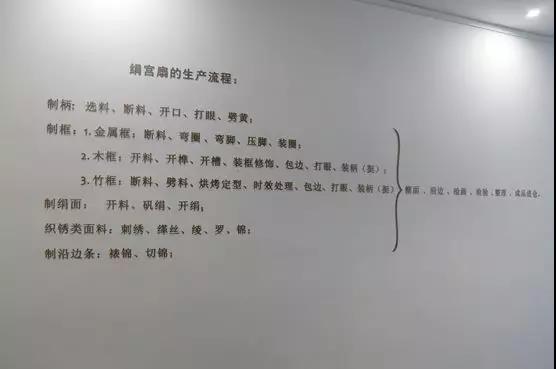 绢宫扇的生产流程：
制柄：选料、断料、开口、打眼、劈黄；
制框：1.金属框：断料、弯圈、弯脚、压脚、装圈；
2.木框：开料、开榫、开槽、装框修饰、包边、打眼、装柄（挺）；
3.竹框：断料、劈料、烘烤定型、时效处理、包边、打眼、装柄（挺）
制绢面：开料、矾绢、开绢；
织绣类面料：刺绣、缂丝、绫、罗、锦；
制沿边条：裱锦、切锦；
绷面、沿边、绘画、检验、整理、成品进仓。